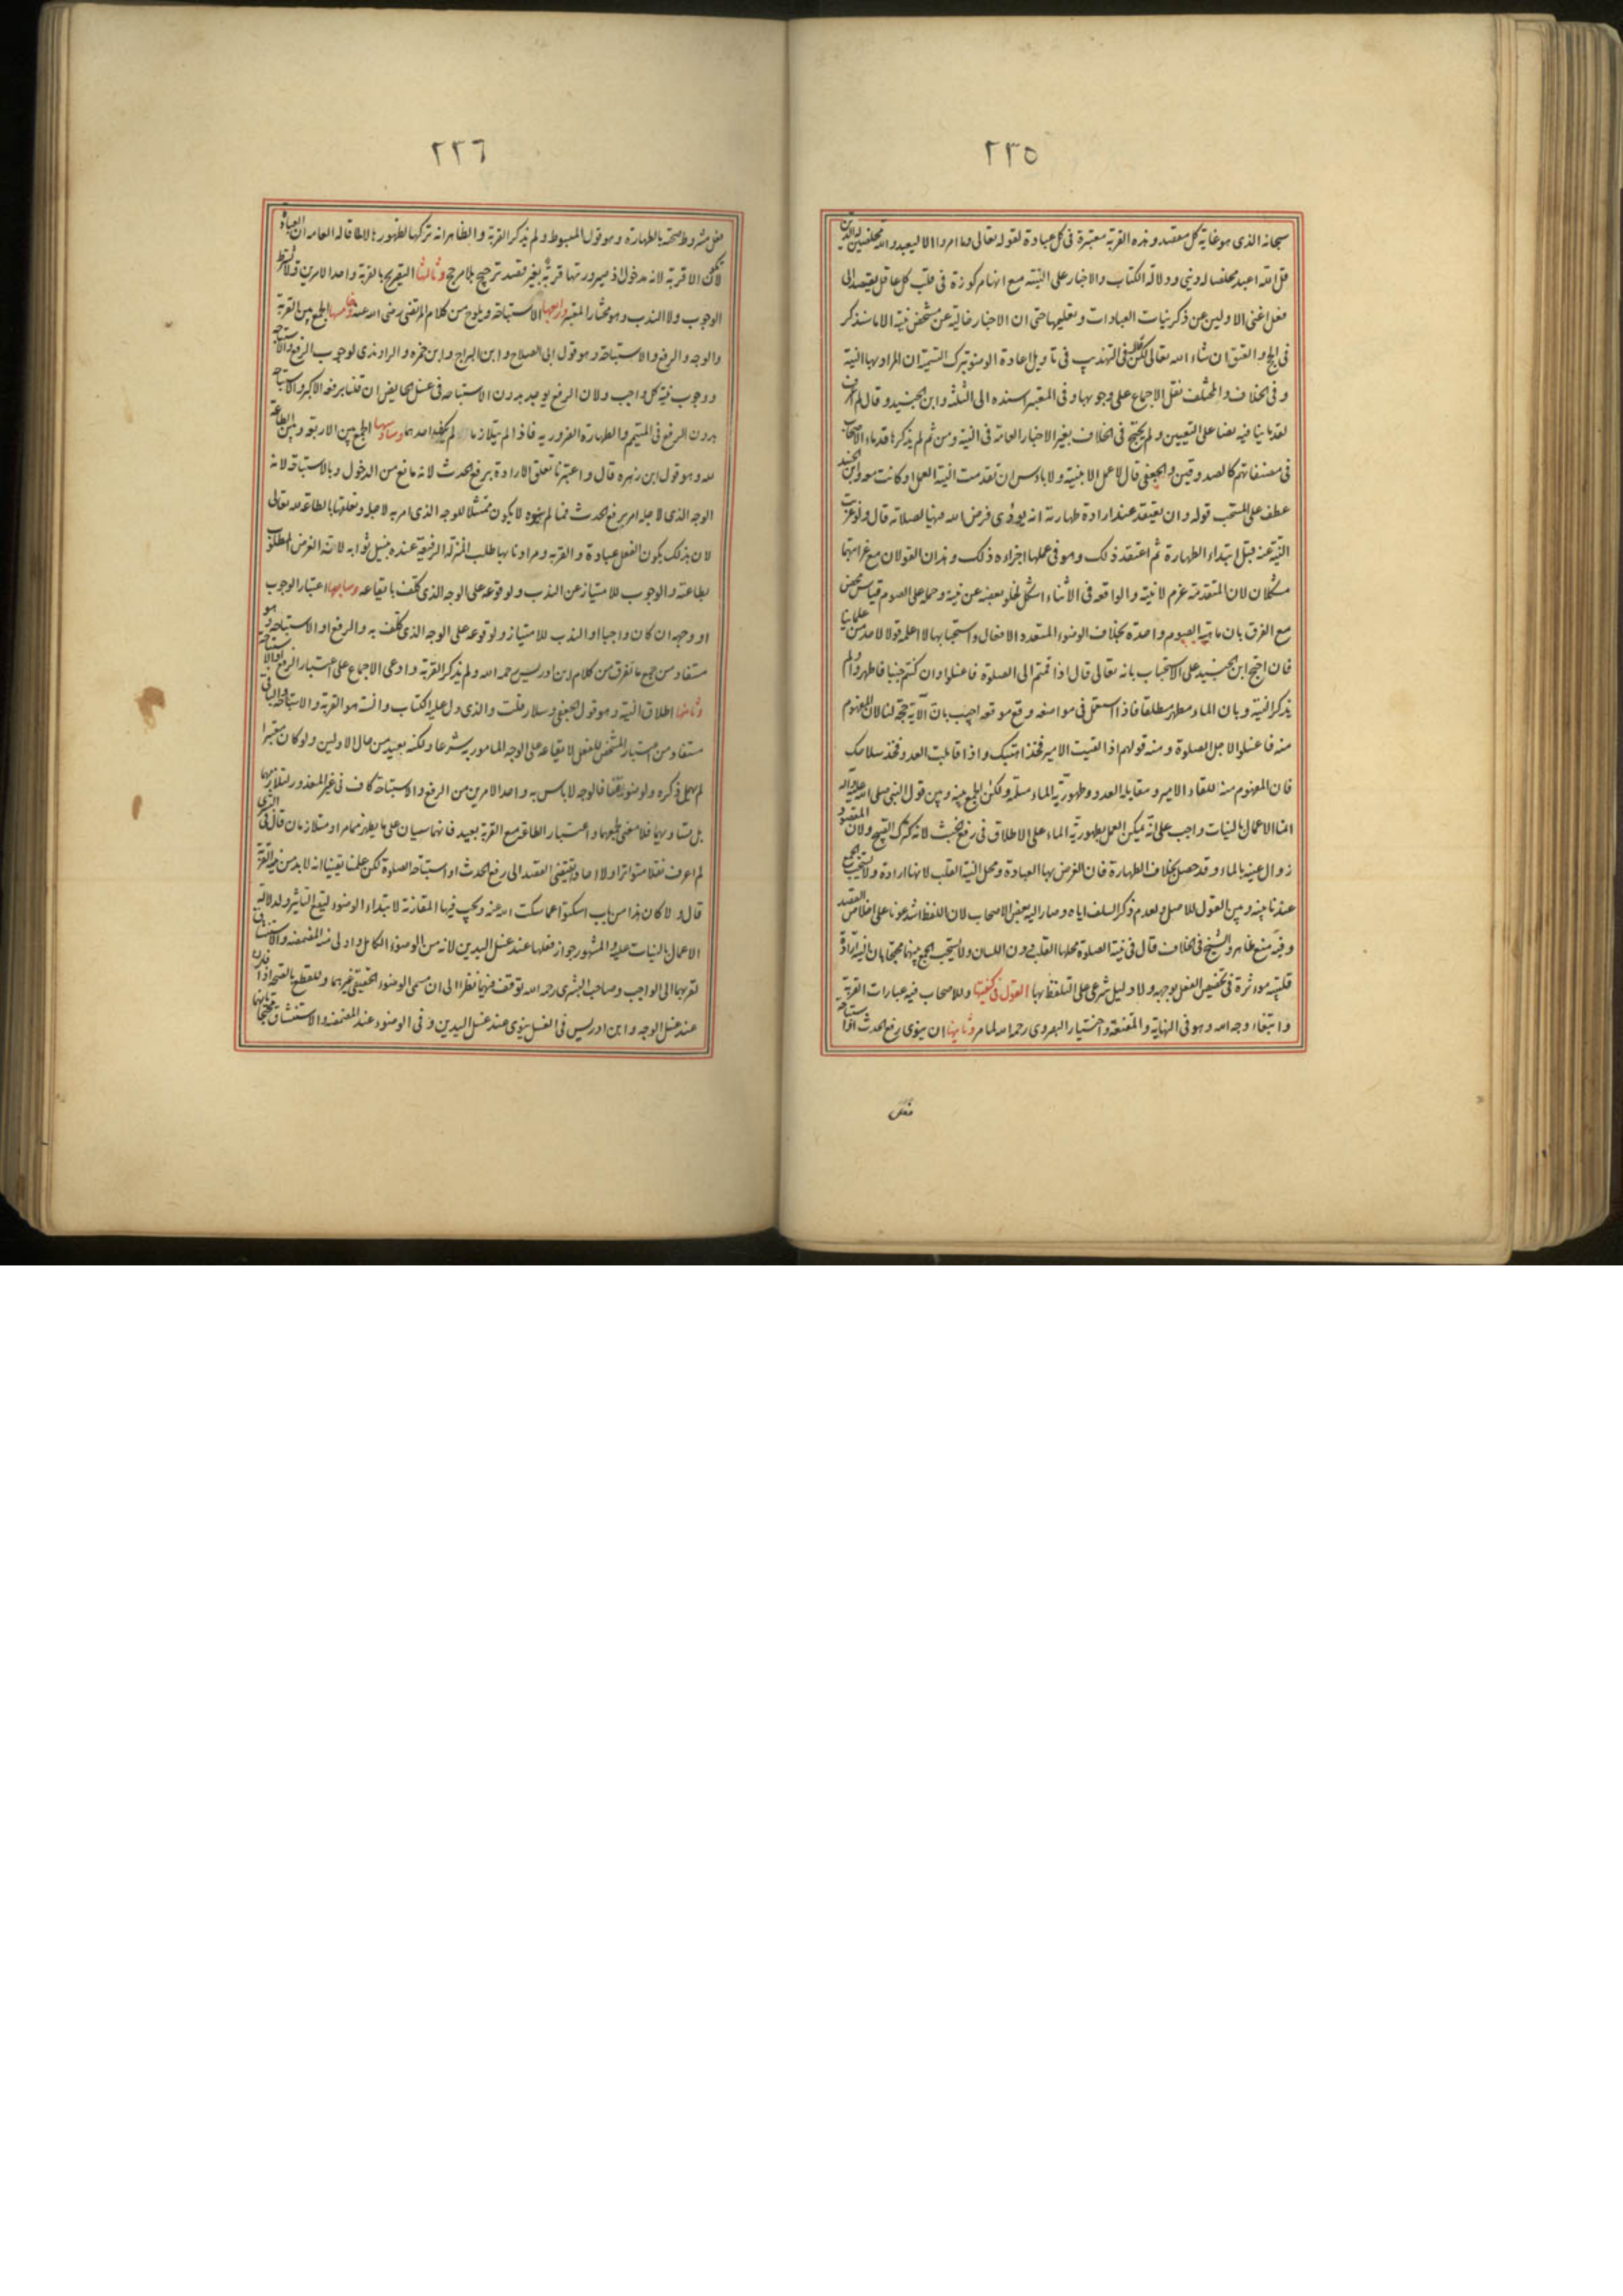 ٢٣٥
سبحانه الذى هو غاية كل مقصد وهذه القربة معتبرة فى كل عبادة لقوله تعالى وما امروا الا ليعبدوا الله مخلصين له الدين
قل الله اعبد مخلصا له دينى ودلالة الكتاب والاخبار على النية مع انها مركوزة فى قلب كل عاقل يقصد الى
فعل اغنى الاولين عن ذكر نيات العبادات وتعليمها حتى ان الاخبار خالية عن مشخص نية الا ما سنذكر
فى الحج والعتق ان شاء الله تعالى لكن فى التهذيب فى تاويل اعادة الوضوء بترك التسمية ان المراد بها النية
وفى الخلاف والمختلف نقل الاجماع على وجوبها وفى المعتبر اسنده الى الثلثة وابن الجنيد وقال لم اعرف
لقدمائنا فيه نصا على التعيين ولم يحتج فى الخلاف بغير الاخبار العامة فى النية ومن ثم لم يذكرها قدماء الاصحاب
فى مصنفاتهم كالصدوقين والجعفى قال لا عمل الا بنية ولا باس ان تقدمت النية العمل او كانت معه وابن الجنيد
عطف على المستحب قوله وان يعتقد عند ارادة طهارته انه يؤدى فرض الله فيها لصلاته قال ولو عزبت
النية عنه قبل ابتداء الطهارة ثم اعتقد ذلك وهو فى عملها اجزاه ذلك وهذان القولان مع غرابتهما
مشكلان لان المتقدمة عزم لا نية والواقعة فى الاثناء اشكل لخلو بعضه عن نية وحمله على الصوم قياس محض
مع الفرق بان ماهية الصوم واحدة بخلاف الوضوء المتعدد الافعال واستحبابها لا اعلمه قولا لاحد من علمائنا
فان احتج ابن الجنيد على الاستحباب بانه تعالى قال اذا قمتم الى الصلوة فاغسلوا وان كنتم جنبا فاطهروا ولم
يذكر النية وبان الماء مطهر مطلقا فاذا استعمل فى مواضعه وقع موقعه اجيب بان الآية حجة لنا لان المفهوم
منه فاغسلوا لاجل الصلوة ومنه قولهم اذا لقيت الامير فخذ اهبتك واذا قابلت العدو فخذ سلاحك
فان المفهوم منه للقاء الامير ومقابلة العدو وطهورية الماء مسلمة ولكن الجمع بينه وبين قول النبى صلى الله عليه واله
انما الاعمال بالنيات واجب على انه يمكن العمل بطهورية الماء على الاطلاق فى رفع الخبث لانه كترك القبيح ولان المقصود
زوال عينه بالماء وقد حصل بخلاف الطهارة فان الغرض بها العبادة ومحل النية القلب لانها ارادة ولا يستحب الجمع
عندنا بينه وبين القول للاصل ولعدم ذكر السلف اياه وصار اليه بعض الاصحاب لان اللفظ اشد عونا على اخلاص القصد
وفيه منع ظاهر والشيخ فى الخلاف قال فى نية الصلوة محلها القلب دون اللسان ولا يستحب الجمع بينهما محتجا بان النية ارادة
قلبية موثرة فى تخصيص الفعل بوجهه ولا دليل شرعى على التلفظ بها القول فى كيفيتها وللاصحاب فيه عبارات القربة
وابتغاء وجه الله وهو فى النهاية والمقنعة واختيار البصروى رحمه الله لما مر وثانيها ان ينوى رفع الحدث او استباحة
فعل
٢٣٦
فعل مشروط صحته بالطهارة وهو قول المبسوط ولم يذكر القربة والظاهر انه تركها لظهورها لا لما قاله العامة ان العبادة
لا تكون الا قربة لانه مدخول اذ صيرورتها قربة بغير قصد ترجيح بلا مرجح وثالثها التقرب بالقربة واحد الامرين ولا يشترط
الوجوب ولا الندب وهو مختار المعتبر ورابعها الاستباحة ويلوح من كلام المرتضى رضى الله عنه وخامسها الجمع بين القربة
والوجه والرفع والاستباحة وهو قول ابى الصلاح وابن البراج وابن حمزة والراوندى لوجوب الرفع والاستباحة
ووجوب نية كل واجب ولان الرفع يوجد بدون الاستباحة فى غسل الحائض ان قلنا برفعه الاكبر والاستباحة
بدون الرفع فى المتيمم والطهارة الضرورية فاذا لم يتلازما لم يكف احدهما وسادسها الجمع بين الاربعة وبين الطاعة
لله وهو قول ابن زهره قال واعتبرنا تعلق الارادة برفع الحدث لانه مانع من الدخول وبالاستباحة لانه
الوجه الذى لاجله امر برفع الحدث فما لم ينوه لا يكون ممتثلا للوجه الذى امر به لاجله وتعلقها بالطاعة لله تعالى
لان بذلك يكون الفعل عبادة والقربة ومرادنا بها طلب المنزلة الرفيعة عنده بنيل ثوابه لانه الغرض المطلوب
بطاعته والوجوب للامتياز عن الندب ولوقوعه على الوجه الذى كلف بايقاعه وسابعها اعتبار الوجوب
او وجهه ان كان واجبا او الندب للامتياز ولوقوعه على الوجه الذى كلف به والرفع او الاستباحة وهو
مستفاد من جمع ما تفرق من كلام ابن ادريس رحمه الله ولم يذكر القربة وادعى الاجماع على اعتبار الرفع او الاستباحة
وثامنها اطلاق النية وهو قول الجعفى وسلار قلت والذى دل عليه الكتاب والسنة هو القربة والاستباحة والباقى
مستفاد من اعتبار المشخص للفعل لايقاعه على الوجه المامور به شرعا ولكنه بعيد من حال الاولين ولو كان معتبرا
لم يهمل ذكره ولو ضويقنا فالوجه لا باس به واحد الامرين من الرفع والاستباحة كاف فى غير المعذور لتلازمهما
بل تساويهما فلا معنى لجمعهما واعتبار الطاعة مع القربة بعيد فانهما سيان على ما يظهر تمامه او متلازمان قال فى البشرى
لم اعرف نقلا متواترا ولا احادا يقتضى القصد الى رفع الحدث او استباحة الصلوة لكن علمنا يقينا انه لا بد من نية القربة
قال والا كان هذا من باب اسكتوا عما سكت الله عنه ويجب فيها المقارنة لابتداء الوضوء ليقع التاثير ولدلالة
الاعمال بالنيات عليه والمشهور جواز فعلها عند غسل اليدين لانه من الوضوء الكامل واولى منه المضمضة والاستنشاق
لقربهما الى الواجب وصاحب البشرى رحمه الله توقف فيها نظرا الى ان مسمى الوضوء الحقيقى غيرهما وللقطع بالصحة اذا قارن
عند غسل الوجه وابن ادريس فى الغسل ينوى عند غسل اليدين وفى الوضوء عند المضمضة والاستنشاق محتجا بانهما